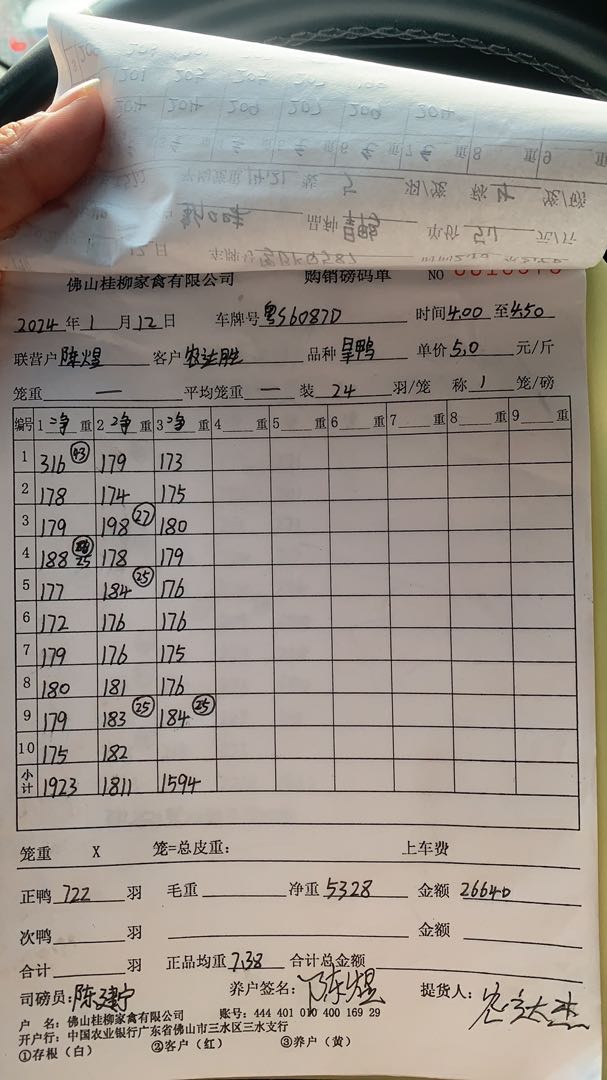 佛山桂柳家禽有限公司 购销磅码单 NO
2024年1月12日 车牌号粤S6087D 时间4.00至4.50
联营户陈煜 客户 品种旱鸭 单价5.0元/斤
笼重 一 平均笼重 一 装 24 羽/笼 称 1 笼/磅
编号 1净重 2净重 3净重 4重 5重 6重 7重 8重 9重
1 316 (43) 179 173
2 178 174 175
3 179 198 (27) 180
4 188 25 178 179
5 177 184 (25) 176
6 172 176 176
7 179 176 175
8 180 181 176
9 179 183 (25) 184 (25)
10 175 182
小计 1923 1811 1594
笼重 X 笼=总皮重: 上车费
正鸭 722 羽 毛重 净重 5328 金额 26640
次鸭 羽 金额
合计 羽 正品均重 7.38 合计总金额
司磅员:陈建宁 养户签名:陈煜 提货人:
户 名: 佛山桂柳家禽有限公司 账号: 444 401 010 400 169 29
开户行: 中国农业银行广东省佛山市三水区三水支行
①存根（白） ②客户（红） ③养户（黄）